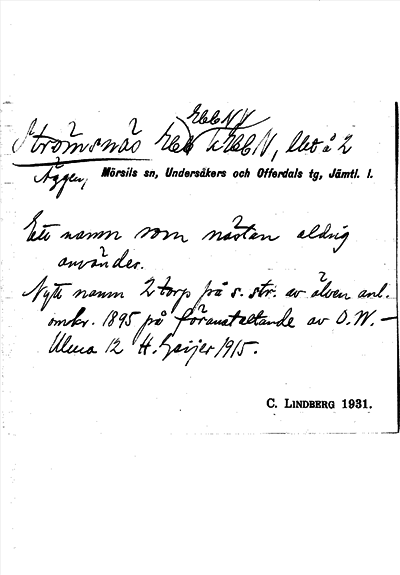 EbbNV
Strömsnäs Ebb EbbN, lht å 2
Äggen, Mörsils sn, Undersåkers och Offerdals tg, Jämtl. l.
Ett namn som nästan aldrig
användes.
Nytt namn 2 torp på s. str. av älven anl.
omkr. 1895 på föranstaltande av O.W. –
Ulma 12 H. Geijer 1915.
C. LINDBERG 1931.